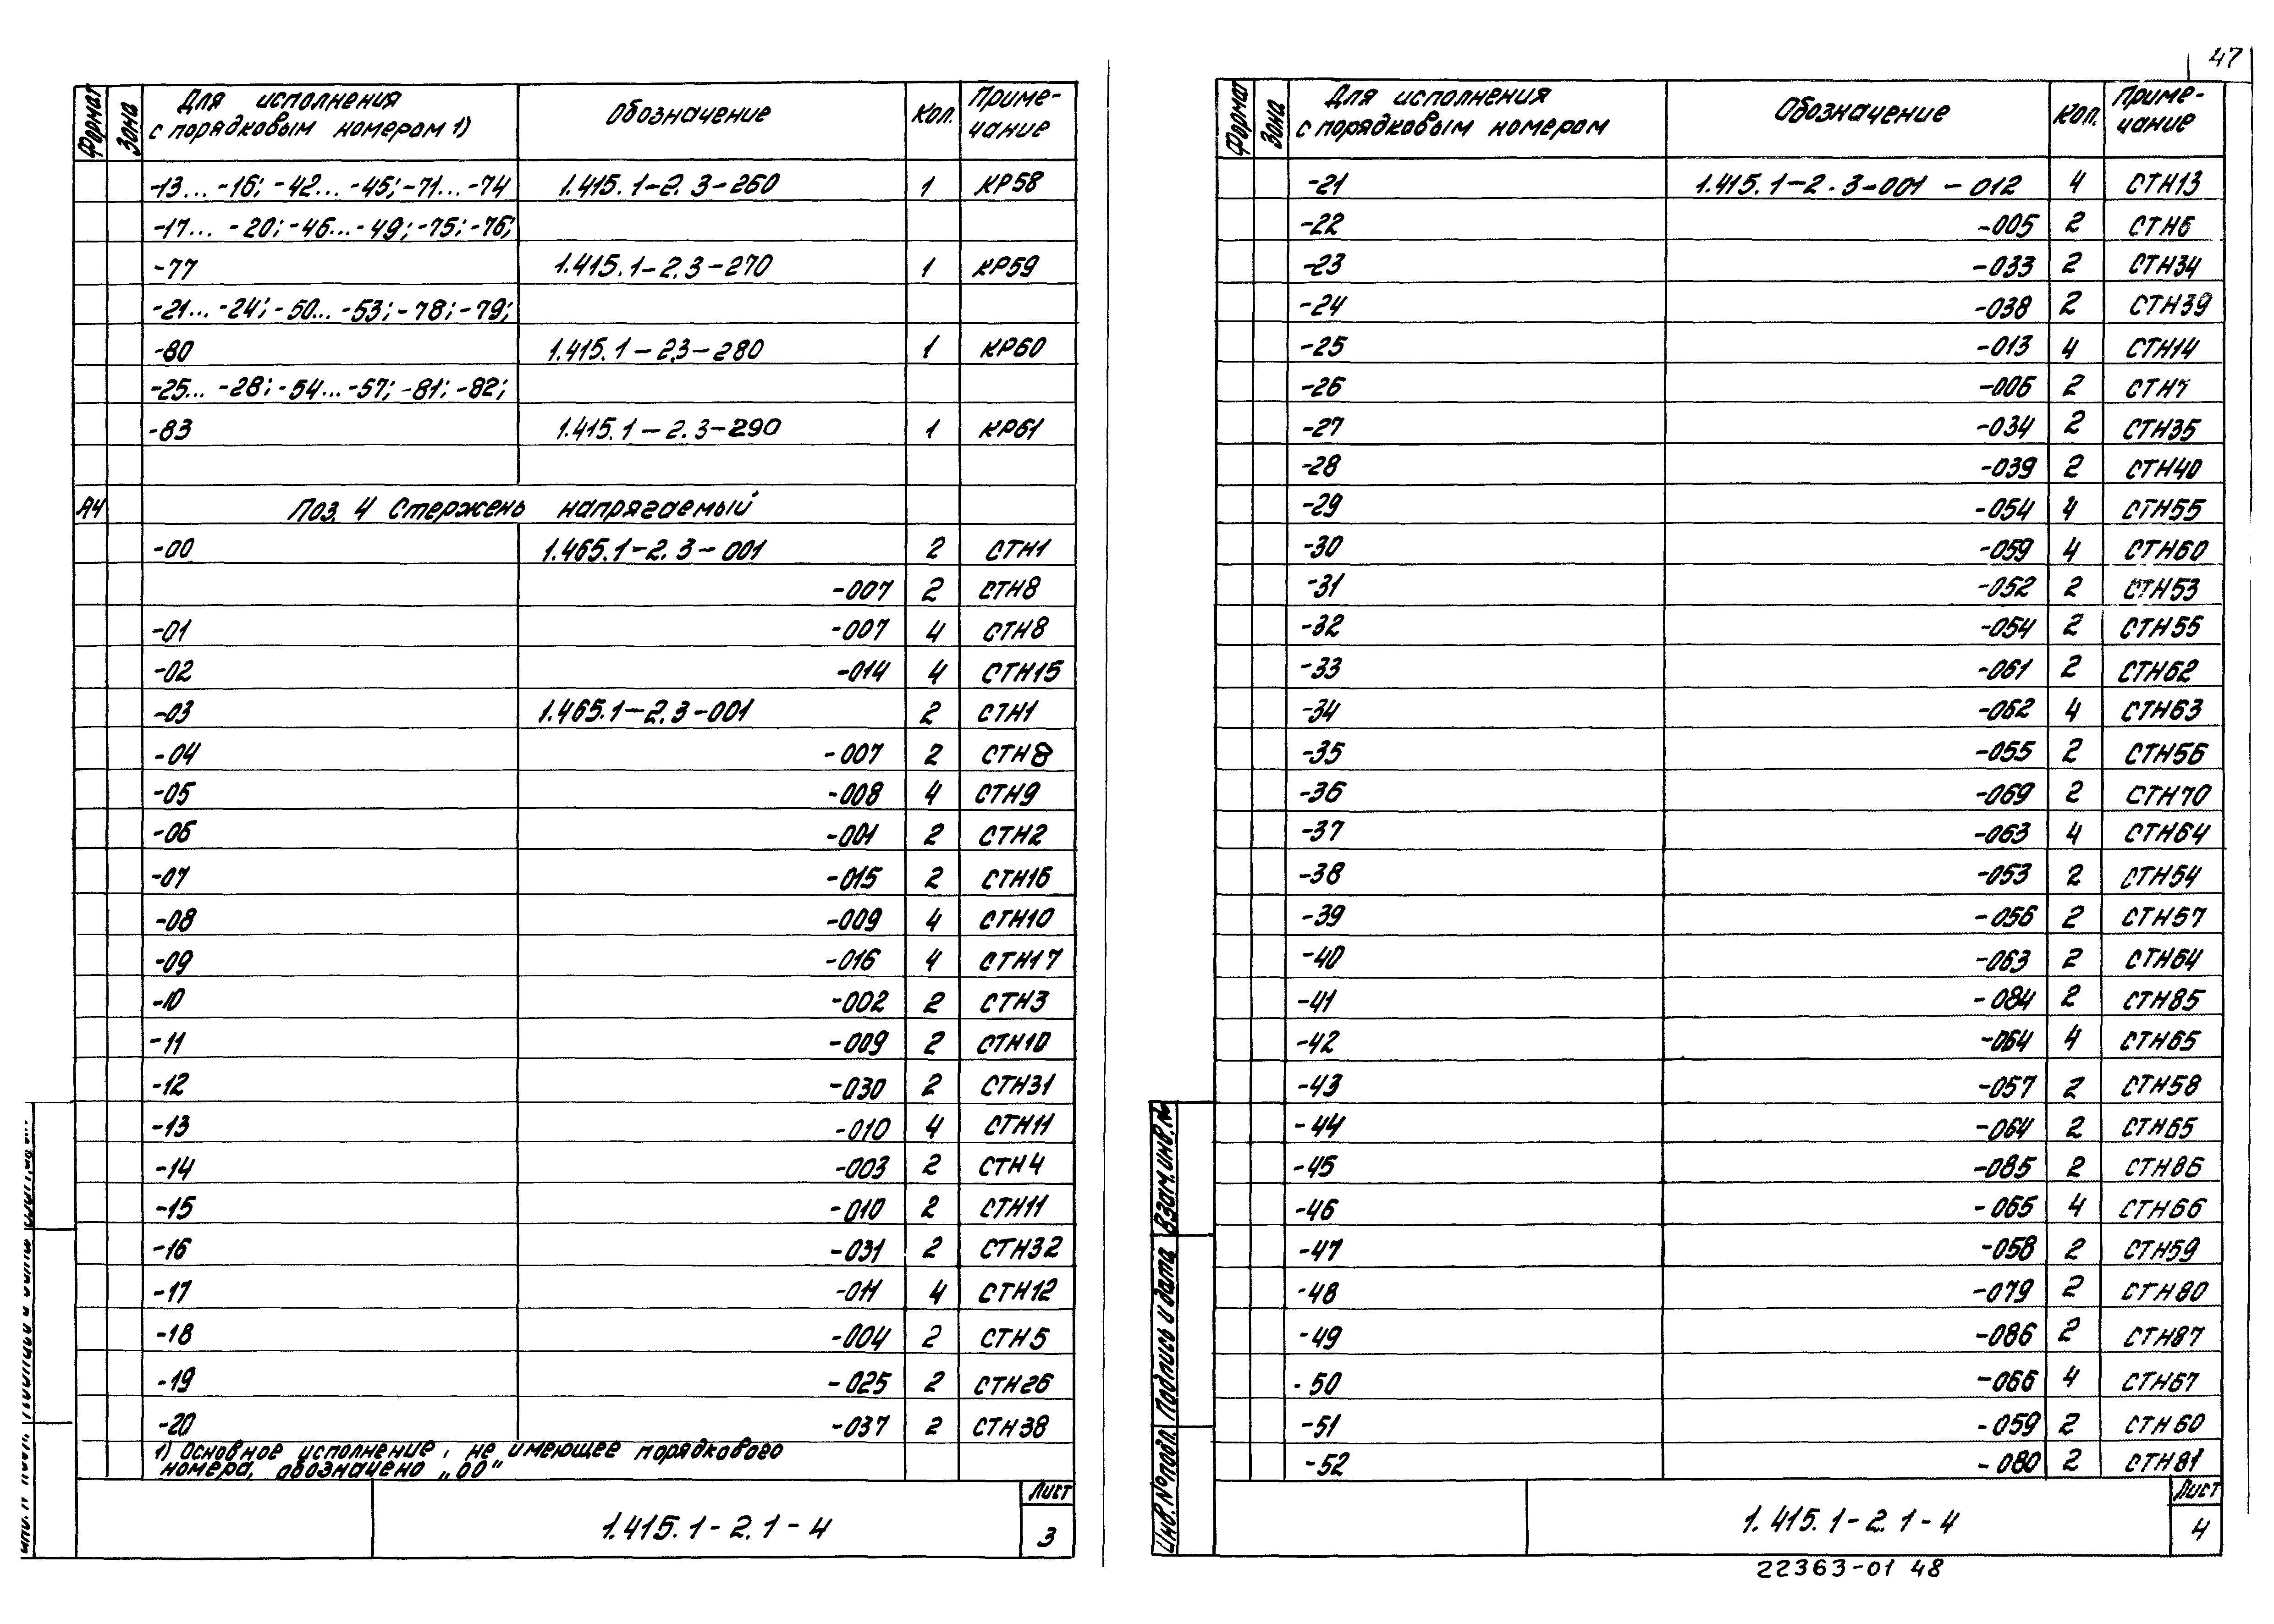 47
Формат Зона Для исполнения с порядковым номером 1) Обозначение Кол. Приме-чание
-13... -16; -42... -45; -71... -74 1.415.1-2.3-260 1 КР58
-17... -20; -46... -49; -75; -76;
-77 1.415.1-2.3-270 1 КР59
-21... -24; -50... -53; -78; -79;
-80 1.415.1-2.3-280 1 КР60
-25... -28; -54... -57; -81; -82;
-83 1.415.1-2.3-290 1 КР61
А4 Поз. 4 Стержень напрягаемый
-00 1.465.1-2.3-001 2 СТН1
-007 2 СТН8
-01 -007 4 СТН8
-02 -014 4 СТН15
-03 1.465.1-2.3-001 2 СТН1
-04 -007 2 СТН8
-05 -008 4 СТН9
-06 -001 2 СТН2
-07 -015 2 СТН16
-08 -009 4 СТН10
-09 -016 4 СТН17
-10 -002 2 СТН3
-11 -009 2 СТН10
-12 -030 2 СТН31
-13 -010 4 СТН11
-14 -003 2 СТН4
-15 -010 2 СТН11
-16 -031 2 СТН32
-17 -011 4 СТН12
-18 -004 2 СТН5
-19 -025 2 СТН26
-20 -037 2 СТН38
1) Основное исполнение, не имеющее порядкового
номера, обозначено „00"
1.415.1-2.1-4
Лист
3
Формат Зона Для исполнения с порядковым номером Обозначение Кол. Приме-чание
-21 1.415.1-2.3-001 -012 4 СТН13
-22 -005 2 СТН6
-23 -033 2 СТН34
-24 -038 2 СТН39
-25 -013 4 СТН14
-26 -006 2 СТН7
-27 -034 2 СТН35
-28 -039 2 СТН40
-29 -054 4 СТН55
-30 -059 4 СТН60
-31 -052 2 СТН53
-32 -054 2 СТН55
-33 -061 2 СТН62
-34 -062 4 СТН63
-35 -055 2 СТН56
-36 -069 2 СТН70
-37 -063 4 СТН64
-38 -053 2 СТН54
-39 -056 2 СТН57
-40 -063 2 СТН64
-41 -084 2 СТН85
-42 -064 4 СТН65
-43 -057 2 СТН58
-44 -064 2 СТН65
-45 -085 2 СТН86
-46 -065 4 СТН66
-47 -058 2 СТН59
-48 -079 2 СТН80
-49 -086 2 СТН87
-50 -066 4 СТН67
-51 -059 2 СТН60
-52 -080 2 СТН81
Инв. № подл. Подпись и дата Взам. инв. №
1.415.1-2.1-4
Лист
4
22363-01 48